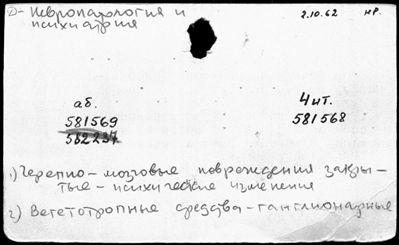 D- Невропатология и 2.10.62 нр.
психиатрия
аб. Чит.
581569 581568
562237
1) Черепно-мозговые повреждения закры-
тые-психические изменения
2) Вегетотропные средства-ганглионарные